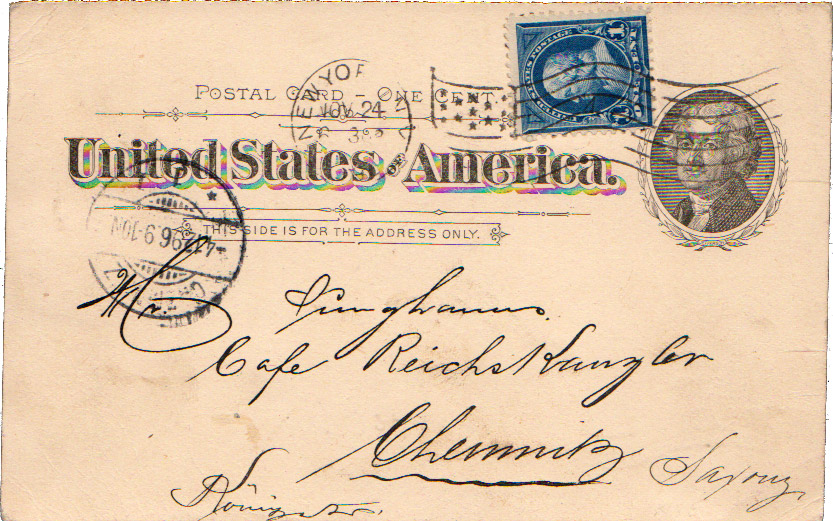 POSTAL CARD – ONE CENT.
United States of America.
THIS SIDE IS FOR THE ADDRESS ONLY.
NEW YORK
NOV 24
Mr. Junghanns.
Café Reichskanzler
Chemnitz
Saxony
Königstr.